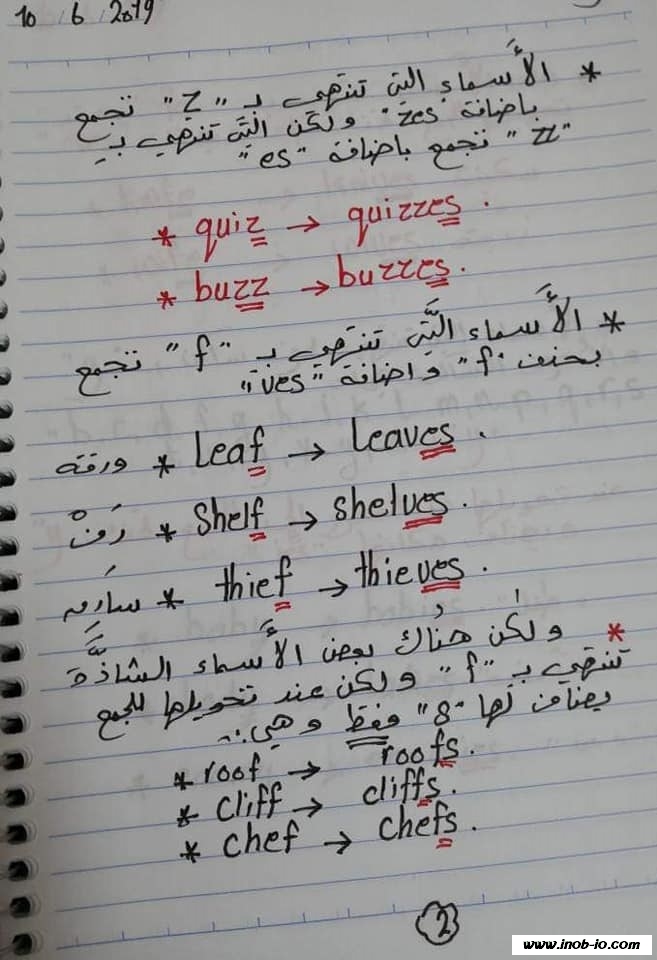 10 / 6 / 2019
* الأَسماء التي تنتهي بـ "z" تجمع
بإضافة "zes" ولكن التَّي تنتهي بـِ
"zz" تجمع باضافة "es"
* quiz → quizzes.
* buzz → buzzes.
* الأَسماء التَّي تنتَهي بـ "f" تجمع
بحذف "f" و اضافة "ves"
ورقة * Leaf → Leaves.
رَفْ * Shelf → shelves.
سارِق * thief → thieves.
* ولكن هُناك بعض الأَسماء الشاذَّة
تنتهي بـ "f" ولكن عند تحويلها للجمع
يضاف لها "s" فقط وهي:-
* roof → roofs.
* cliff → cliffs.
* chef → chefs.
2
www.inob-io.com